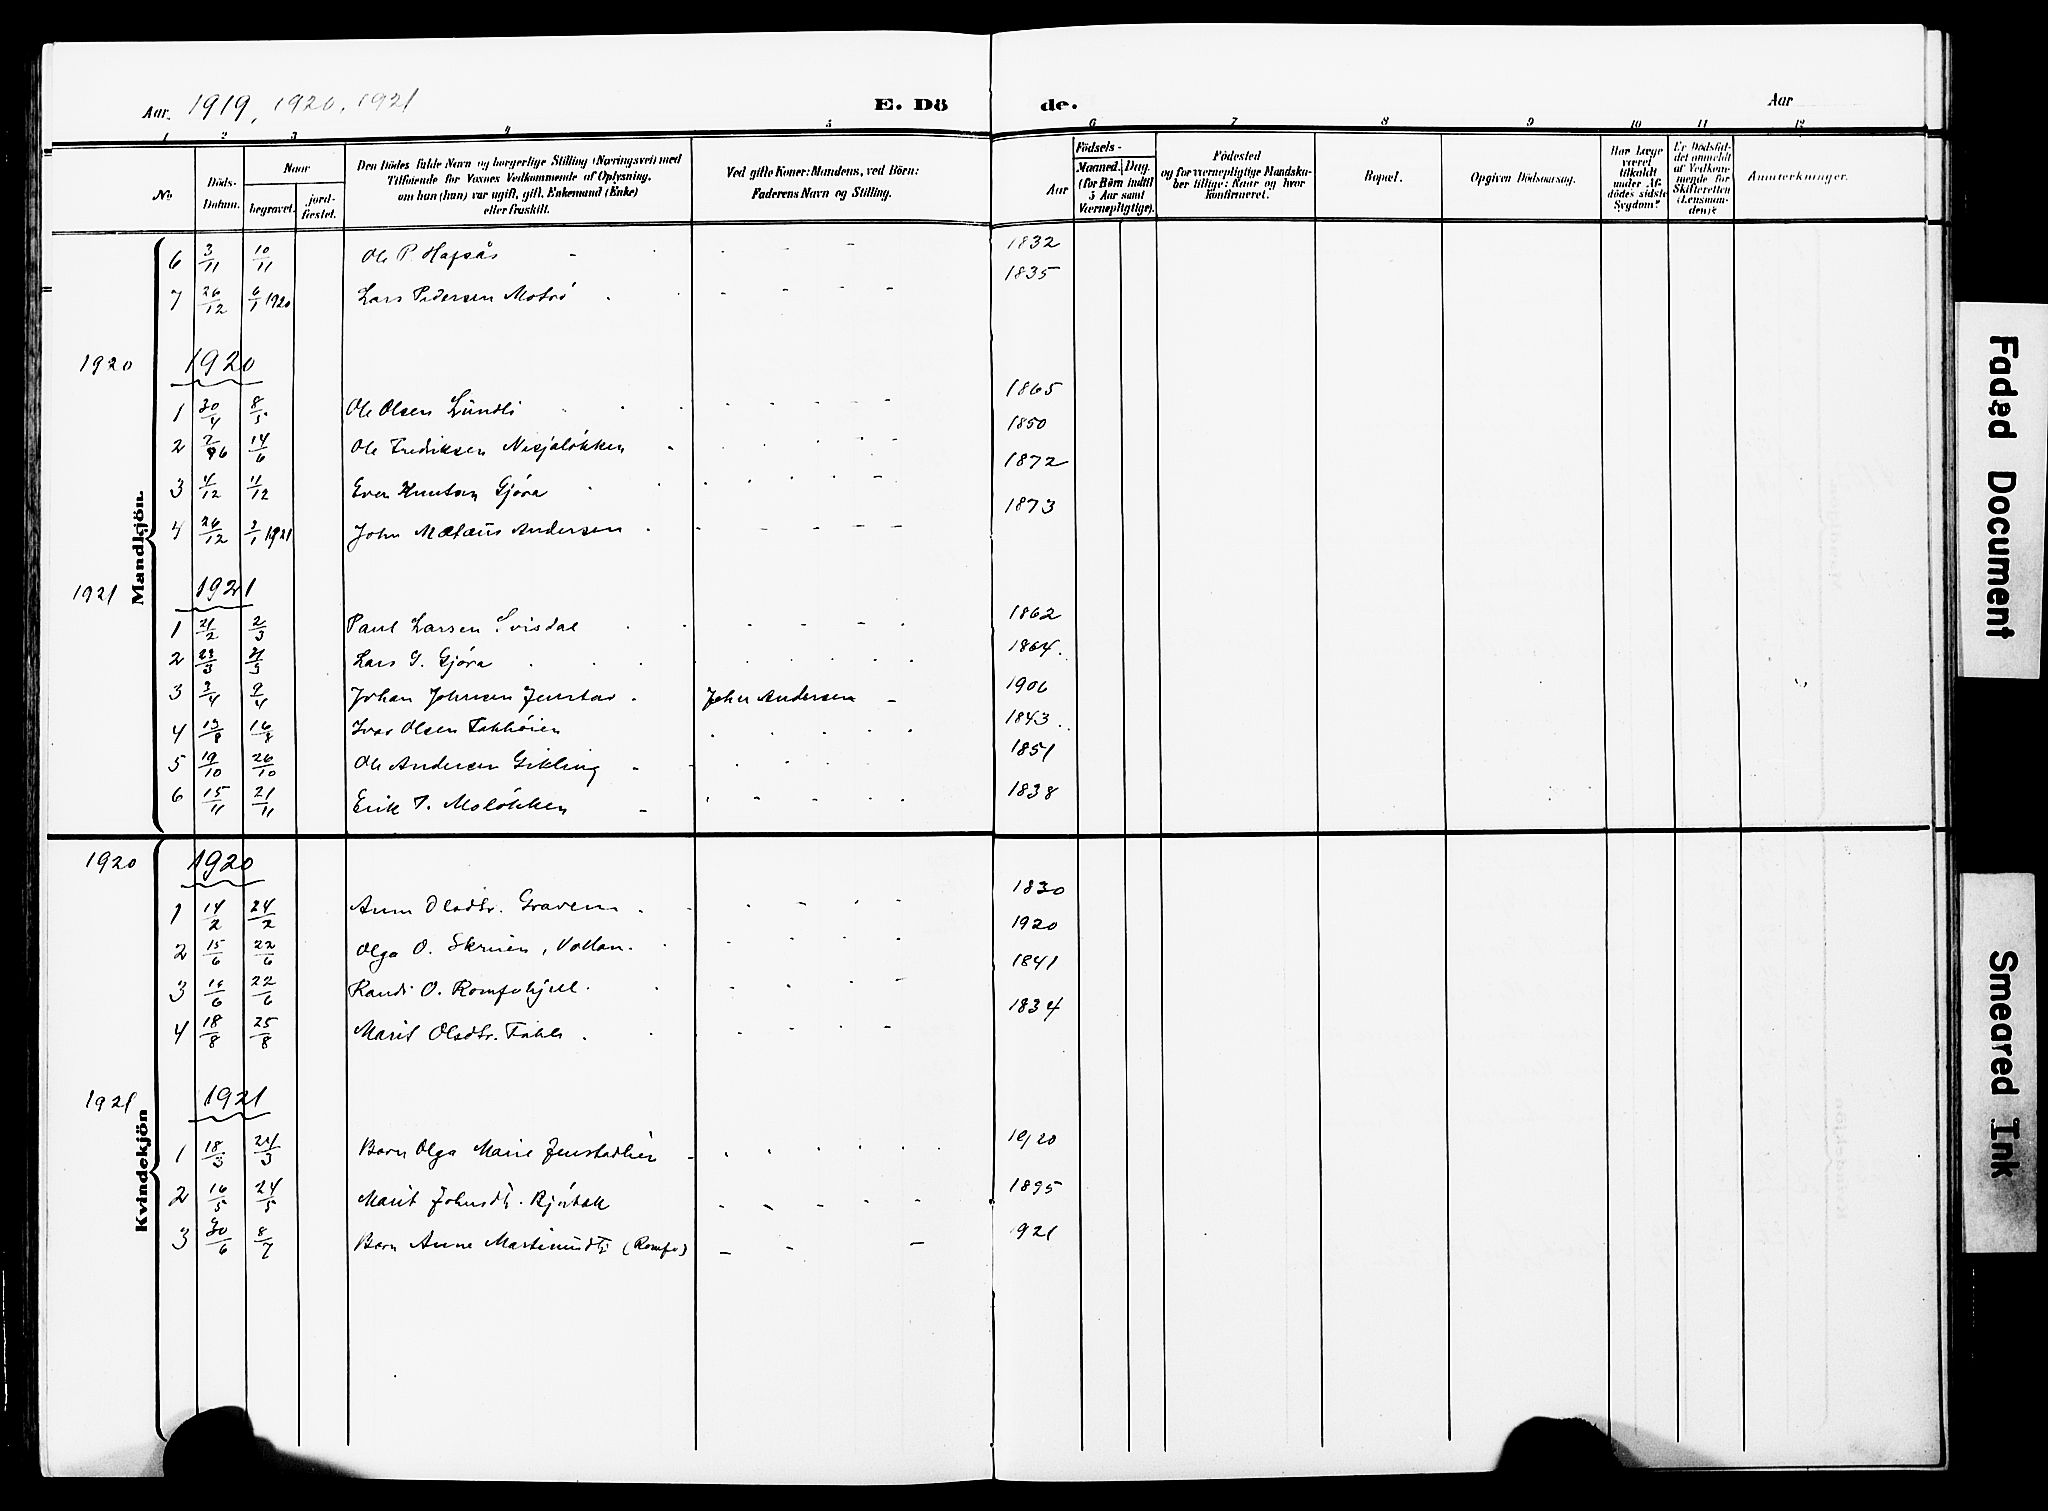 Aar. 1919, 1920, 1921 E. Dö de. Aar
1 2 3 4 5 6 7 8 9 10 11 12
No
Döds-
Datum.
Naar
begravet.
jord-
fæstet.
Den Dödes fulde Navn og borgerlige Stilling (Næringsvei) med
Tilføiende for Voxnes Vedkommende af Oplysning,
om han (hun) var ugift, gift, Enkemand (Enke)
eller fraskilt.
Ved gifte Koner: Mandens, ved Börn:
Faderens Navn og Stilling.
Födsels-
Aar
Maaned. Dag.
(for Börn indtil
5 Aar samt
Værnepligtige).
Födested
og for værnepligtige Mandskа-
ber tillige: Naar og hvor
konfirmeret.
Bopæl.
Opgiven Dödsaarsag.
Har Læge
været
tilkaldt
under Af-
dödes sidste
Sygdom?
Er Dödsfal-
det anmeldt
af Vedkom-
mende for
Skifteretten
(Lensman-
den)?
Anmærkninger.
Mandkjön.
6 3/11 10/11 Ole P. Hafsås 1832
7 26/12 6/1 1920 Lars Pedersen Motrö 1835
1920 1920
1 30/4 8/5 Ole Olsen Lundli 1865
2 2/6 14/6 Ole Fredriksen Nisjaløkken 1850
3 4/12 11/12 Even Knutsen Gjøra 1872
4 26/12 3/1 1921 John Mataus Andersen 1873
1921 1921
1 21/2 2/3 Paul Larsen Svisdal 1862
2 23/3 31/3 Lars G. Gjøra 1864
3 3/4 9/4 Johan Johnsen Jenstad John Andersen 1906
4 13/8 16/8 Ivar Olsen Fahlhøien 1843
5 19/10 26/10 Ole Andersen Gikling 1851
6 15/11 21/11 Erik T. Moløkken 1838
Kvindekjön
1920 1920
1 14/2 24/2 Anne Olsdtr. Gravem 1830
2 15/6 22/6 Olga O. Skruen, Vollan 1920
3 16/6 22/6 Randi O. Romfohjell 1841
4 18/8 25/8 Marit Olsdtr. Fahle 1834
1921 1921
1 18/3 24/3 Barn Olga Marie Jenstadlien 1920
2 16/5 24/5 Marit Johnsdtr. 1895
3 30/6 8/7 Barn Anne Martinusdtr (Romfo) 1921
Faded Document
Smeared Ink